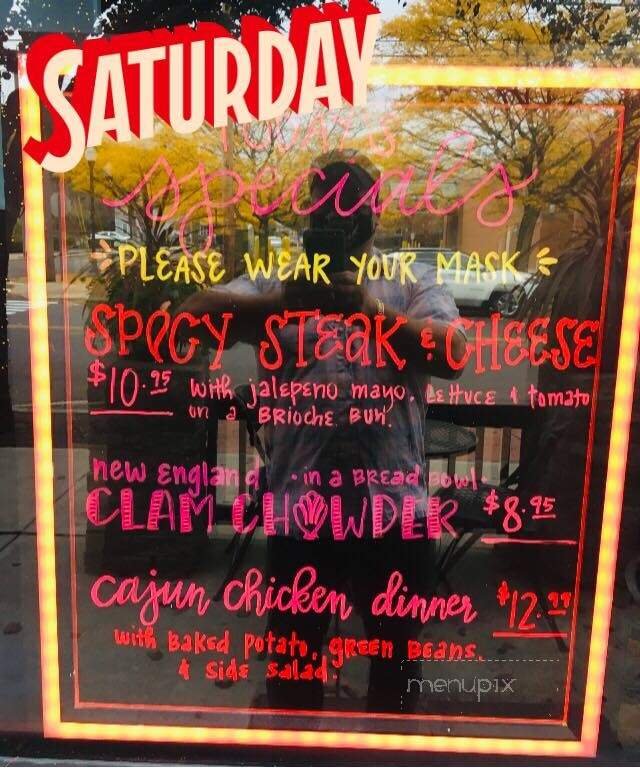 SATURDAY
TODAY'S
specials
PLEASE WEAR YOUR MASK
SPICY STEAK & CHEESE
$10.95 with jalepeno mayo. Lettuce & tomato
on a BRioche Bun.
new england · in a BREad Bowl ·
CLAM CHOWDER $8.95
cajun chicken dinner $12.99
with Baked Potato, gREEN BEans.
& Side salad.
menupix